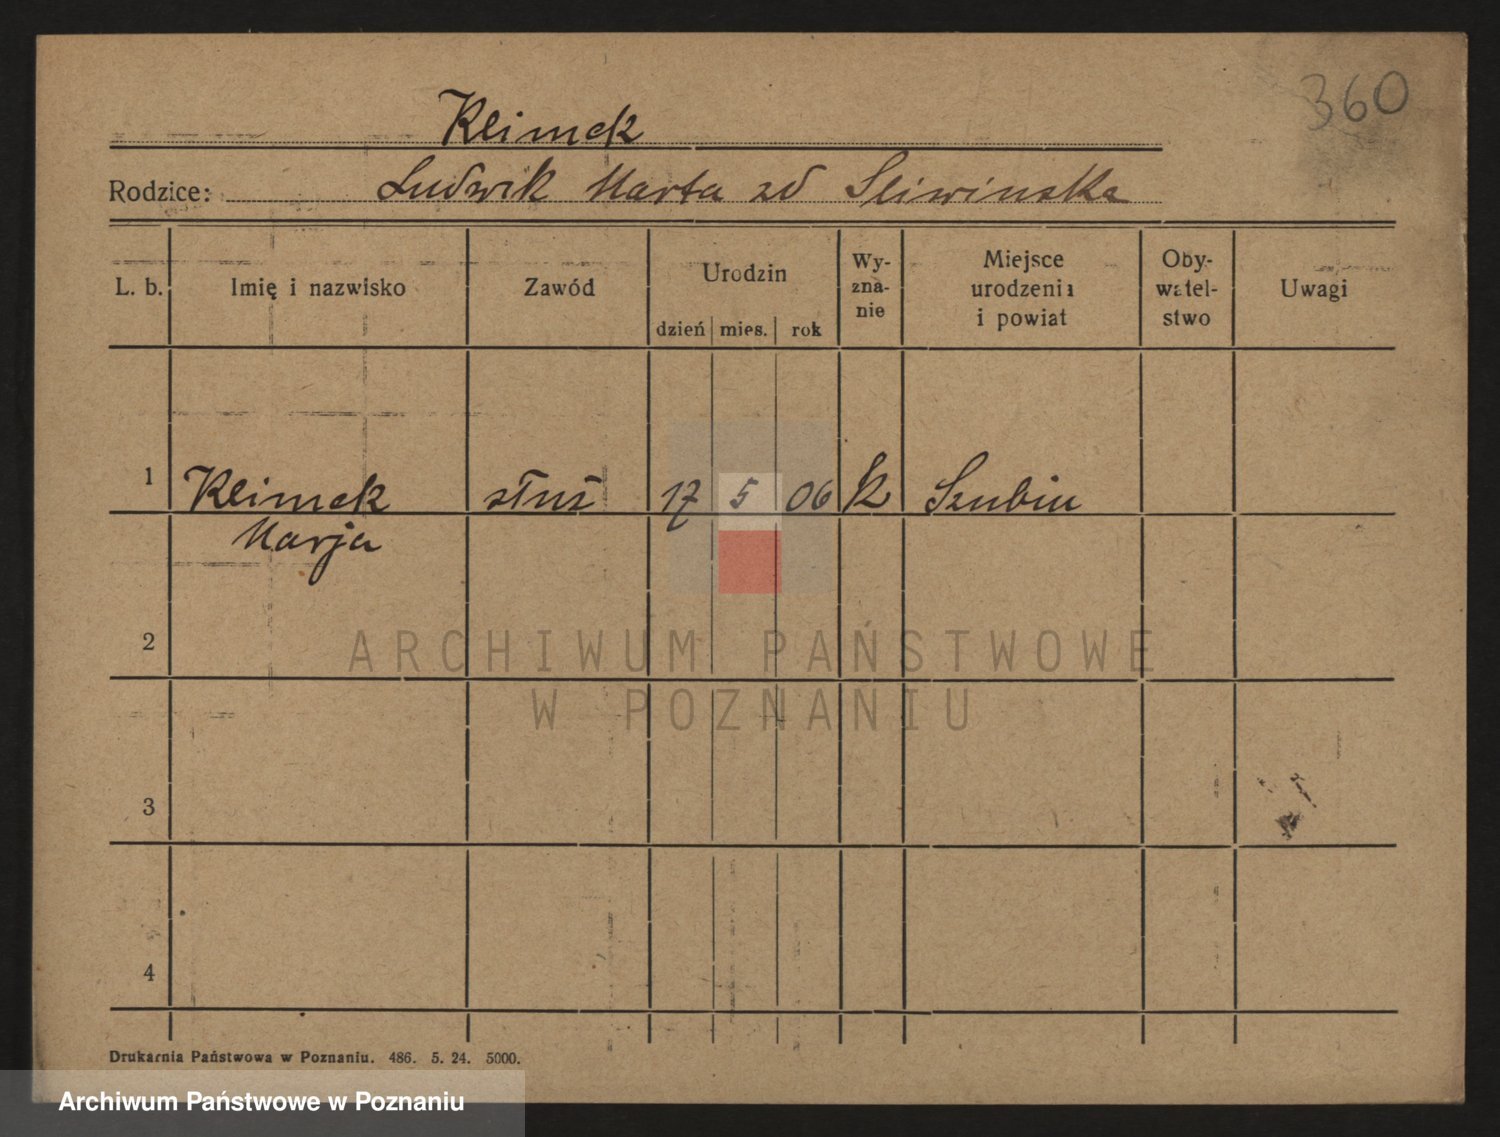 360
Klimek
Rodzice: Ludwik Marta zd Sliwinska
L. b. Imię i nazwisko Zawód Urodzin dzień mies. rok Wy-zna-nie Miejsce urodzenia i powiat Oby-watel-stwo Uwagi
1 Klimek służ 17 5 06 k Szubin
Marja
2
ARCHIWUM PAŃSTWOWE
W POZNANIU
3
4
Drukarnia Państwowa w Poznaniu. 486. 5. 24. 5000.
Archiwum Państwowe w Poznaniu